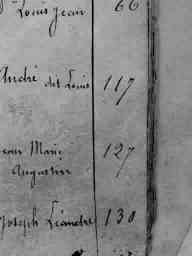 Louis Jean 66
André dit Louis 117
Jean Marie 127
Augustin
Joseph Léandre 130